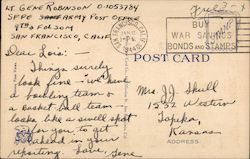 LT GENE ROBINSON O-1053784
SFPE ARMY POST OFFICE
4TH & FOLSOM
SAN FRANCISCO, CALIF
Free
SAN FRANCISCO, CALIF.
1944
BUY
WAR SAVINGS
BONDS AND STAMPS
Dear Lois:
Things surely
look fine - we have
a bowling team &
a basket ball team
looks like a swell spot
for you to get
ahead in your
reporting. Love, Gene
Mrs JJ Skull
1532 Western
Topeka,
Kansas
ADDRESS